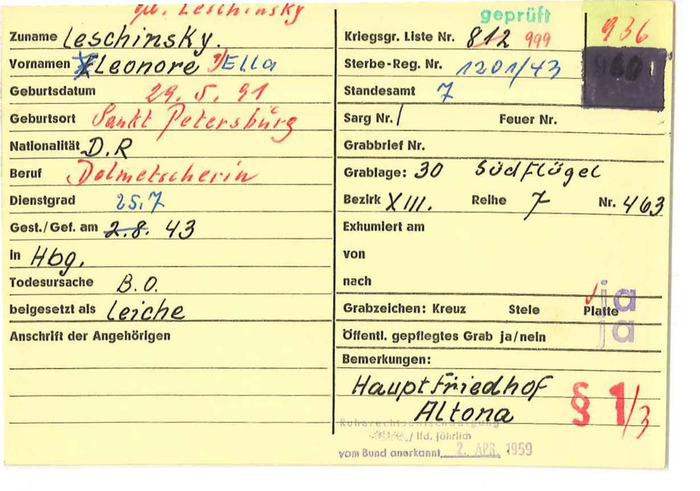 geb. Leschinsky
geprüft
936
Zuname Leschinsky.
Kriegsgr. Liste Nr. 812 999
Vornamen Eleonore Ella
Sterbe-Reg. Nr. 1201/43
960
Geburtsdatum 29. 5. 91
Standesamt 7
Geburtsort Sankt Petersburg
Sarg Nr. / Feuer Nr.
Nationalität D.R
Grabbrief Nr.
Beruf Dolmetscherin
Grablage: 30 Südflügel
Dienstgrad 25.7
Bezirk XIII. Reihe 7 Nr. 463
Gest./Gef. am 2.8. 43
Exhumiert am
in Hbg.
von
Todesursache B.O.
nach
beigesetzt als Leiche
Grabzeichen: Kreuz Stele Platte ja
Anschrift der Angehörigen
Öffentl. gepflegtes Grab ja/nein ja
Bemerkungen:
Hauptfriedhof
Altona
§ 1/3
Ruherechtsentschädigung
/ lfd. jährlich
vom Bund anerkannt 2. APR. 1959